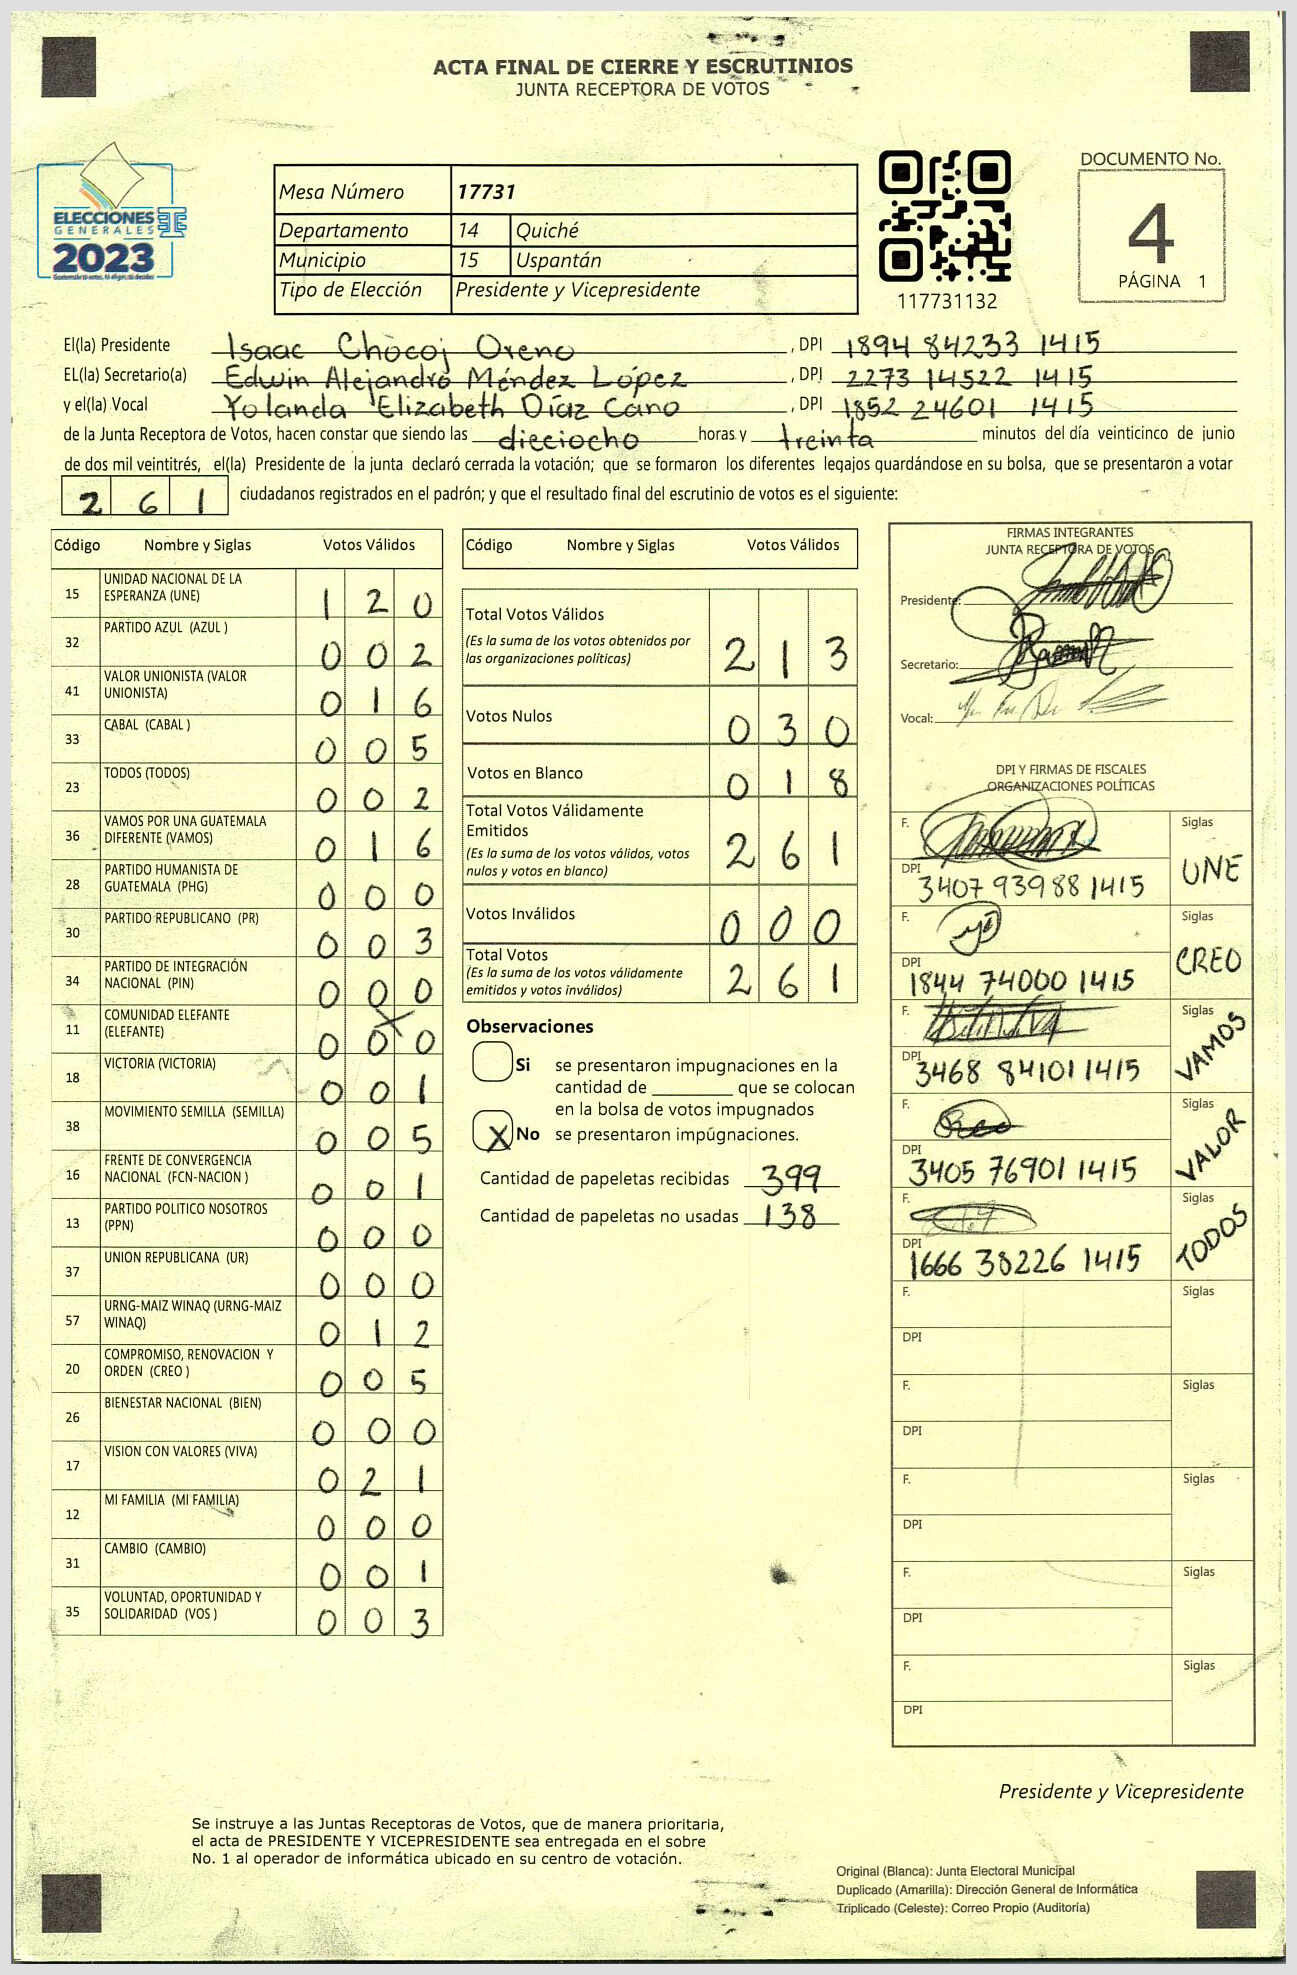 ACTA FINAL DE CIERRE Y ESCRUTINIOS
JUNTA RECEPTORA DE VOTOS
ELECCIONES
GENERALES
2023
Mesa Número 17731
Departamento 14 Quiché
Municipio 15 Uspantán
Tipo de Elección Presidente y Vicepresidente
117731132
DOCUMENTO No.
4
PÁGINA 1
El(la) Presidente Isaac Chocoj Oreno, DPI 1894 84233 1415
EL(la) Secretario(a) Edwin Alejandro Méndez López, DPI 2273 14522 1415
y el(la) Vocal Yolanda Elizabeth Díaz Cano, DPI 1852 24601 1415
de la Junta Receptora de Votos, hacen constar que siendo las dieciocho horas y treinta minutos del día veinticinco de junio
de dos mil veintitrés, el(la) Presidente de la junta declaró cerrada la votación; que se formaron los diferentes legajos guardándose en su bolsa, que se presentaron a votar
261 ciudadanos registrados en el padrón; y que el resultado final del escrutinio de votos es el siguiente:
Código Nombre y Siglas Votos Válidos
15 UNIDAD NACIONAL DE LA ESPERANZA (UNE) 1 2 0
32 PARTIDO AZUL (AZUL ) 0 0 2
41 VALOR UNIONISTA (VALOR UNIONISTA) 0 1 6
33 CABAL (CABAL ) 0 0 5
23 TODOS (TODOS) 0 0 2
36 VAMOS POR UNA GUATEMALA DIFERENTE (VAMOS) 0 1 6
28 PARTIDO HUMANISTA DE GUATEMALA (PHG) 0 0 0
30 PARTIDO REPUBLICANO (PR) 0 0 3
34 PARTIDO DE INTEGRACIÓN NACIONAL (PIN) 0 0 0
11 COMUNIDAD ELEFANTE (ELEFANTE) 0 0 0
18 VICTORIA (VICTORIA) 0 0 1
38 MOVIMIENTO SEMILLA (SEMILLA) 0 0 5
16 FRENTE DE CONVERGENCIA NACIONAL (FCN-NACION ) 0 0 1
13 PARTIDO POLITICO NOSOTROS (PPN) 0 0 0
37 UNION REPUBLICANA (UR) 0 0 0
57 URNG-MAIZ WINAQ (URNG-MAIZ WINAQ) 0 1 2
20 COMPROMISO, RENOVACION Y ORDEN (CREO ) 0 0 5
26 BIENESTAR NACIONAL (BIEN) 0 0 0
17 VISION CON VALORES (VIVA) 0 2 1
12 MI FAMILIA (MI FAMILIA) 0 0 0
31 CAMBIO (CAMBIO) 0 0 1
35 VOLUNTAD, OPORTUNIDAD Y SOLIDARIDAD (VOS ) 0 0 3
Código Nombre y Siglas Votos Válidos
Total Votos Válidos
(Es la suma de los votos obtenidos por
las organizaciones políticas) 2 1 3
Votos Nulos 0 3 0
Votos en Blanco 0 1 8
Total Votos Válidamente
Emitidos
(Es la suma de los votos válidos, votos
nulos y votos en blanco) 2 6 1
Votos Inválidos 0 0 0
Total Votos
(Es la suma de los votos válidamente
emitidos y votos inválidos) 2 6 1
Observaciones
Si se presentaron impugnaciones en la
cantidad de ________ que se colocan
en la bolsa de votos impugnados
X No se presentaron impugnaciones.
Cantidad de papeletas recibidas 399
Cantidad de papeletas no usadas 138
FIRMAS INTEGRANTES
JUNTA RECEPTORA DE VOTOS
Presidente:
Secretario:
Vocal:
DPI Y FIRMAS DE FISCALES
ORGANIZACIONES POLÍTICAS
F. Siglas UNE
DPI 3407 93988 1415
F. Siglas CREO
DPI 1844 74000 1415
F. Siglas VAMOS
DPI 3468 84101 1415
F. Siglas VALOR
DPI 3405 76901 1415
F. Siglas TODOS
DPI 1666 38226 1415
F. Siglas
DPI
F. Siglas
DPI
F. Siglas
DPI
F. Siglas
DPI
F. Siglas
DPI
Presidente y Vicepresidente
Se instruye a las Juntas Receptoras de Votos, que de manera prioritaria,
el acta de PRESIDENTE Y VICEPRESIDENTE sea entregada en el sobre
No. 1 al operador de informática ubicado en su centro de votación.
Original (Blanca): Junta Electoral Municipal
Duplicado (Amarilla): Dirección General de Informática
Triplicado (Celeste): Correo Propio (Auditoria)